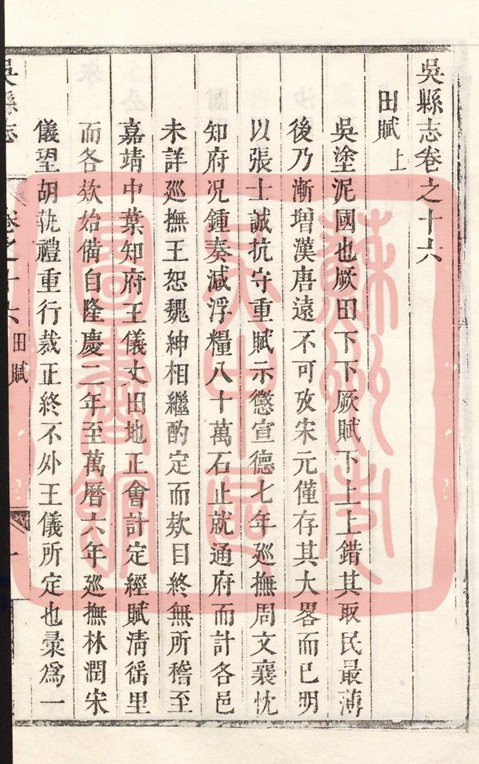 吳縣志卷之十六
田賦上
吳塗泥國也厥田下下厥賦下上上錯其取民最薄
後乃漸增漢唐遠不可攷宋元僅存其大畧而已明
以張士誠抗守重賦示懲宣德七年廵撫周文襄忱
知府况鍾奏減浮糧八十萬石止就通府而計各邑
未詳廵撫王恕魏紳相繼酌定而欵目終無所稽至
嘉靖中葉知府王儀丈田地正會計定經賦清徭里
而各欵始備自隆慶二年至萬曆六年廵撫林潤宋
儀望胡執禮重行裁正終不外王儀所定也彚爲一
吳縣志
卷之十六
田賦
一